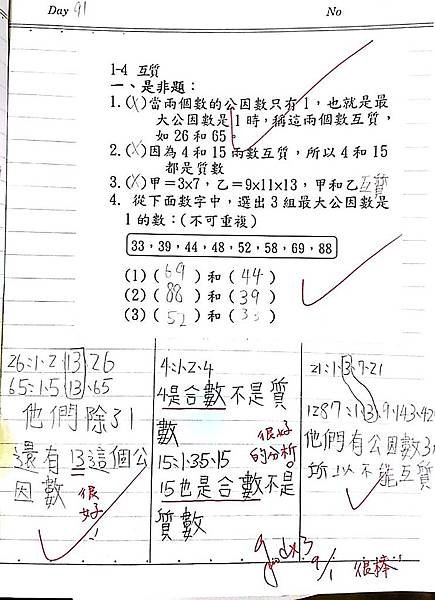 Day 91
No
1-4 互質
一、是非題：
1.(X)當兩個數的公因數只有1，也就是最
大公因數是1時，稱這兩個數互質，
如26和65。
2.(X)因為4和15兩數互質，所以4和15
都是質數
3.(X)甲=3x7，乙=9x11x13，甲和乙互質
4. 從下面數字中，選出3組最大公因數是
1的數：(不可重複)
33，39，44，48，52，58，69，88
(1)(69)和(44)
(2)(88)和(39)
(3)(52)和(33)
26=1、2、13、26
65=1、5、13、65
他們除了1
還有13這個公
因數
很
好
4=1、2、4
4是合數不是質
數
很好
的分析。
15=1、3、5、15
15也是合數不是
質數
21=1、3、7、21
1287=1、3、9、143、42
他們有公因數3
所以不能互質
good x3
9/1
很棒